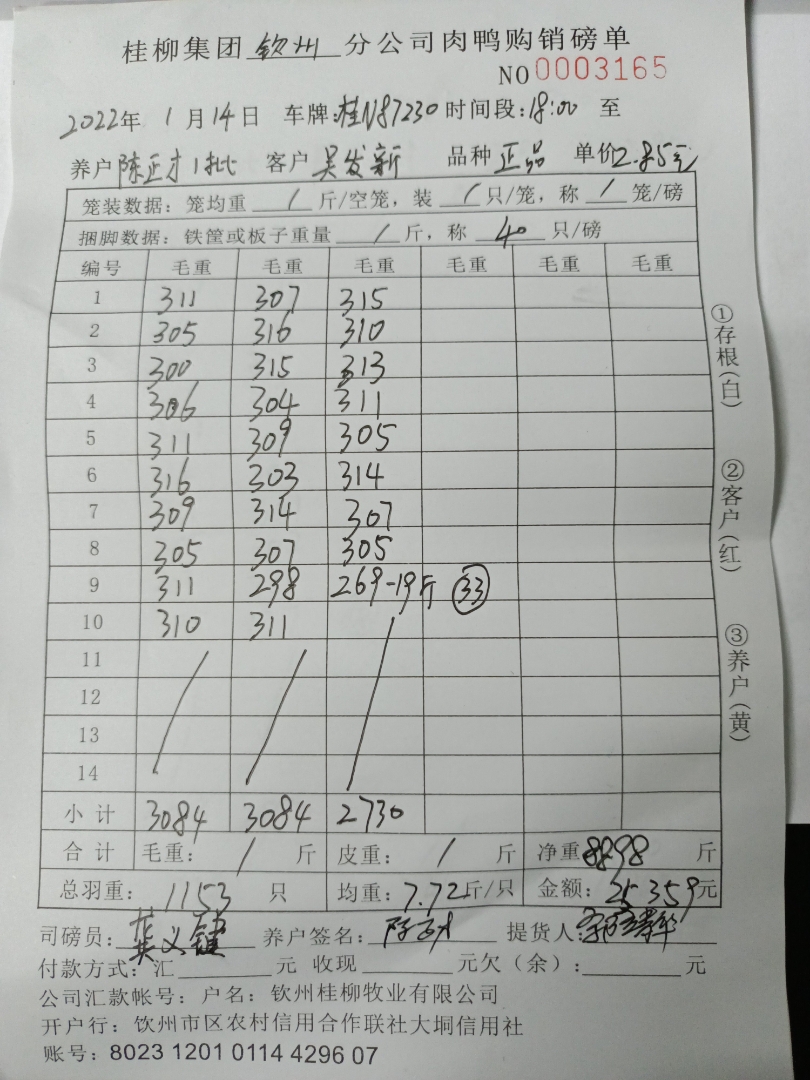 桂柳集团 钦州 分公司肉鸭购销磅单
NO 0003165
2022年 1月14日 车牌:桂N87230 时间段:18:00 至
养户 陈正才1批 客户 吴发新 品种 正品 单价2.85元
笼装数据：笼均重 / 斤/空笼，装 / 只/笼，称 / 笼/磅
捆脚数据：铁筐或板子重量 / 斤，称 40 只/磅
编号 毛重 毛重 毛重 毛重 毛重 毛重
1 311 307 315
2 305 316 310
3 300 315 313
4 306 304 311
5 311 309 305
6 316 303 314
7 309 314 307
8 305 307 305
9 311 298 269-19斤 33
10 310 311
11
12
13
14
小计 3084 3084 2730
合计 毛重： / 斤 皮重： / 斤 净重 8898 斤
总羽重： 1153 只 均重：7.72斤/只 金额：25359元
司磅员： 养户签名： 提货人：
付款方式：汇 元 收现 元欠（余）： 元
公司汇款帐号：户名：钦州桂柳牧业有限公司
开户行：钦州市区农村信用合作联社大垌信用社
账号：8023 1201 0114 4296 07
①存根(白)
②客户(红)
③养户(黄)